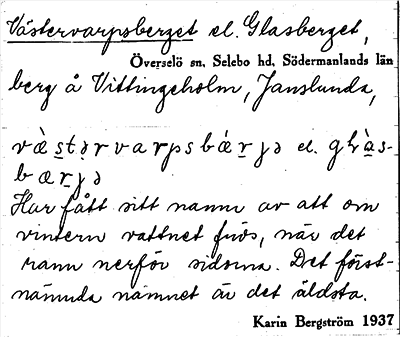 Västervarpsberget el. Glasberget,
Överselö sn. Selebo hd. Södermanlands län
berg å Vittingeholm, Janslunda,
el.
Har fått sitt namn av att om
vintern vattnet frös, när det
rann nerför sidorna. Det först-
nämnda namnet är det äldsta.
Karin Bergström 1937